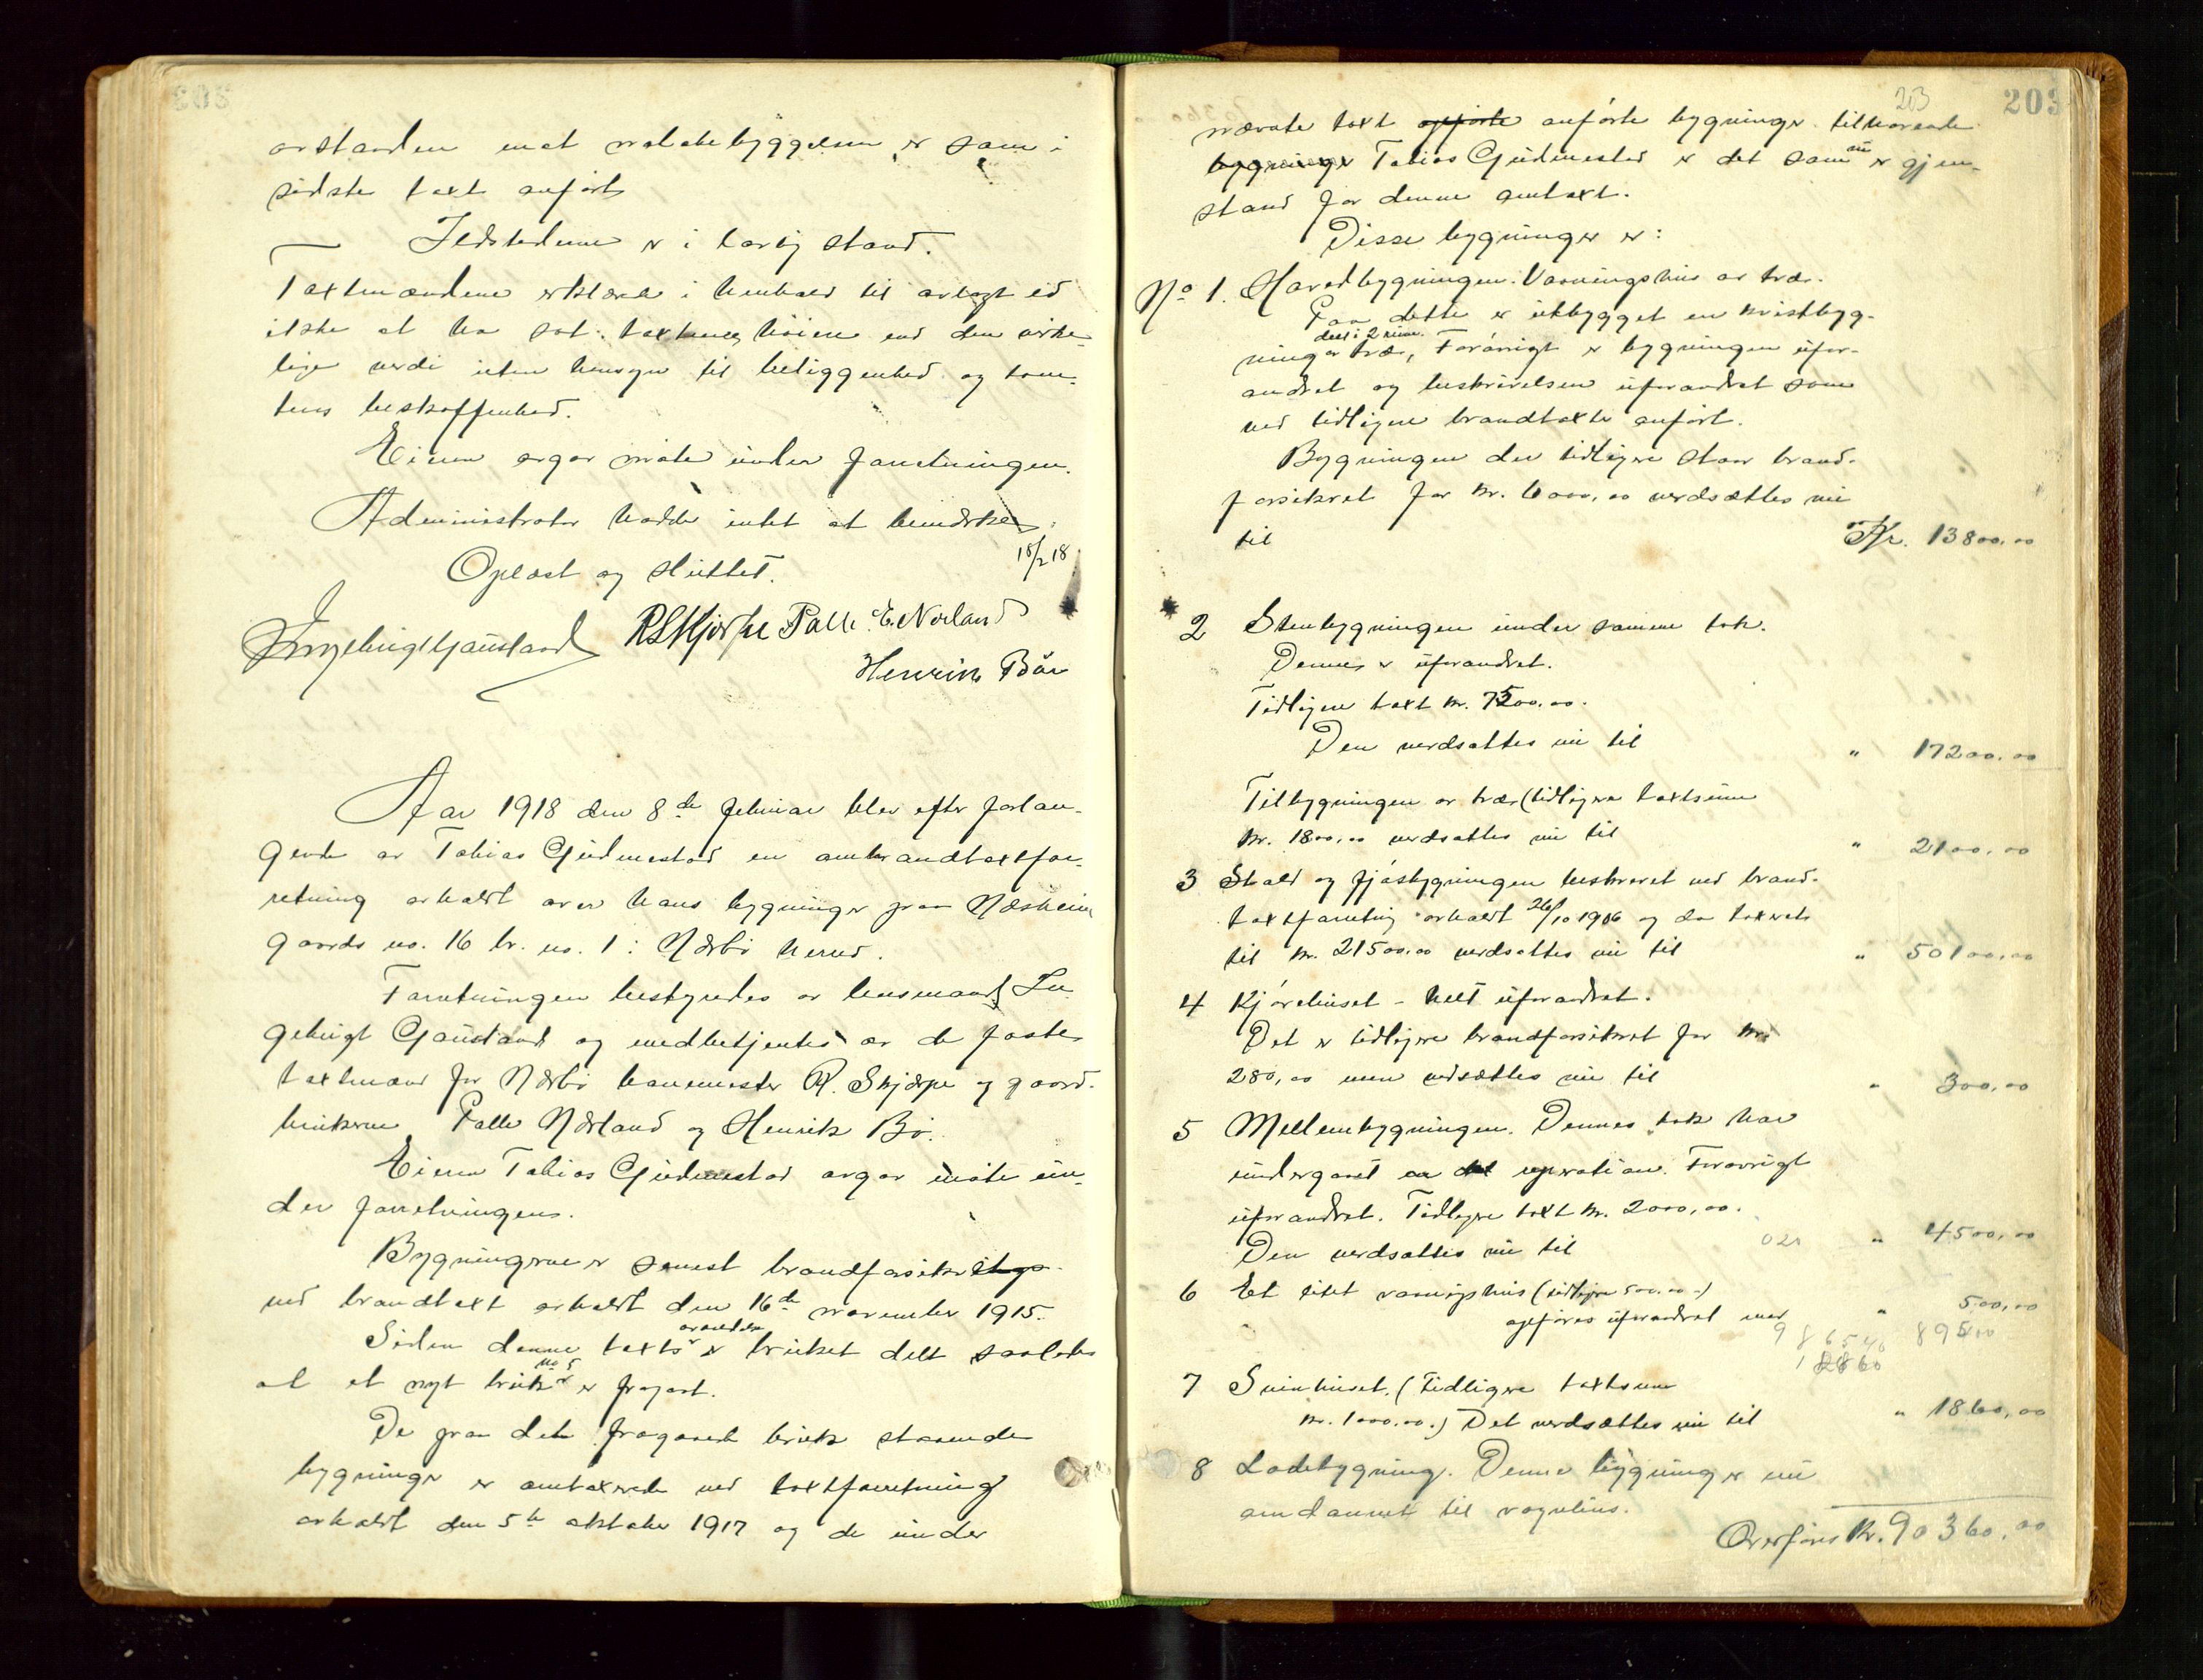 avstanden mat nabobebyggelsen er som i
sidste taxt anført.
— Ildstedene er i lovlig stand.
Taxtmændene erklærte i henhold til avlagt ed
ikke at ha sat taxterne høiere end den virke-
lige verdi uten hensyn til beliggenhed og tom-
tens beskaffenhed.
Eieren avgav møte under forretningen.
Administrator hadde intet at bemerke.
18/2 18
Oplæst og sluttet.
Ingebrigt Gaustand R L Skjærpe Palle E. Nærland
Henrik Bøe
Aar 1918 den 8de februar blev efter forlan-
gende av Tobias Gudmestad en ombrandtaxtfor-
retning avholdt over hans bygninger paa Næsheim
gaards no. 16 br. no. 1 i Nærbø herred.
Forretningen bestyredes av lensmand In-
gebrigt Gaustand og medbetjentes av de faste
taxtmænd for Nærbø havnemester R. Skjærpe og gaard-
brukerne Palle Nærland og Henrik Bø.
Eieren Tobias Gudmestad avgav møte un-
der forretningen.
Bygningerne er senest brandforsikret
ved brandtaxt avholdt den 16de november 1915.
Siden denne taxts avholdelse er bruket delt saaledes
at et nyt bruk no 5 er fragaat.
De paa det fragaaede bruk staaende
bygninger er omtaxerte ved taxtforretning
avholdt den 5te oktober 1917 og de under
203
203
nævnte taxt opførte anførte bygninger tilhørende
bygninger Tobias Gudmestad er det som nu er gjen-
stand for denne omtaxt.
Disse bygninger er:
No 1. Hovedbygningen. Vaaningshus av træ.
Paa dette er utbygget en kvistbyg-
ning av træ, delt i 2 rum. Forøvrigt er bygningen ufor-
andret og beskrivelsen uforandret som
ved tidligere brandtaxte anført.
Bygningen der tidligere staar brand-
forsikret for kr. 6000,00 verdsættes nu
til Kr. 13800,00
2 Stenbygningen under samme tak.
Dennes er uforandret.
Tidligere taxt kr. 7500,00.
Den verdsættes nu til " 17200,00
Tilbygningen av træ (tidligere taxtsum
kr. 1800,00 verdsættes nu til " 2100,00
3 Stald og fjøsbygningen beskrevet ved brand-
taxtforretning avholdt 26/10 1906 og da taxerte
til kr. 21500,00 verdsættes nu til " 50100,00
4 Kjørehuset – helt uforandret.
Det er tidligere brandforsikret for kr.
280,00 men verdsættes nu til " 300,00
5 Mellembygningen. Dennes tak har
undergaaet en del reparation. Forøvrigt
uforandret. Tidligere taxt kr. 2000,00.
Den verdsættes nu til " 4500,00
6 Et litet vaaningshus (tidligere 500,00)
opføres uforandret med " 500,00
7 Svinehuset. (Tidligere taxtsum
kr. 1000,00.) Det verdsættes nu til " 1860,00
8 Ladebygning. Denne bygning er nu
omdannet til vognhus.
Overføres Kr. 90360,00